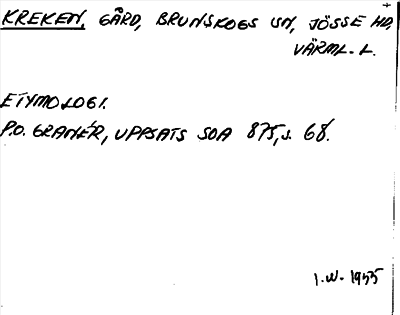 KREKEN, GÅRD, BRUNSKOGS SN, JÖSSE HD,
VÄRML. L.
ETYMOLOGI.
P.O. GRANÉR, UPPSATS SOA 875, s. 68.
I.W. 1955